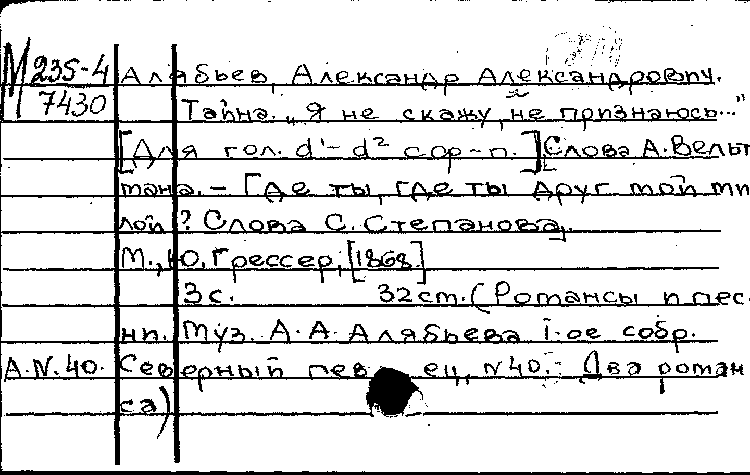 М 235-4 Алябьев, Александр Александрович.
7430 Тайна. „Я не скажу, не признаюсь..."
[Для гол. d¹-d² с ор-п.] Слова А. Вельт
мана. - Где ты, где ты друг мой ми
лой? Слова С. Степанова].
М., Ю. Грессер, [1868]
3с. 32cm. (Романсы и пес
ни. Муз. А. А. Алябьева 1-ое собр.
A.N.40. Северный певец, N40. - Два роман
са)